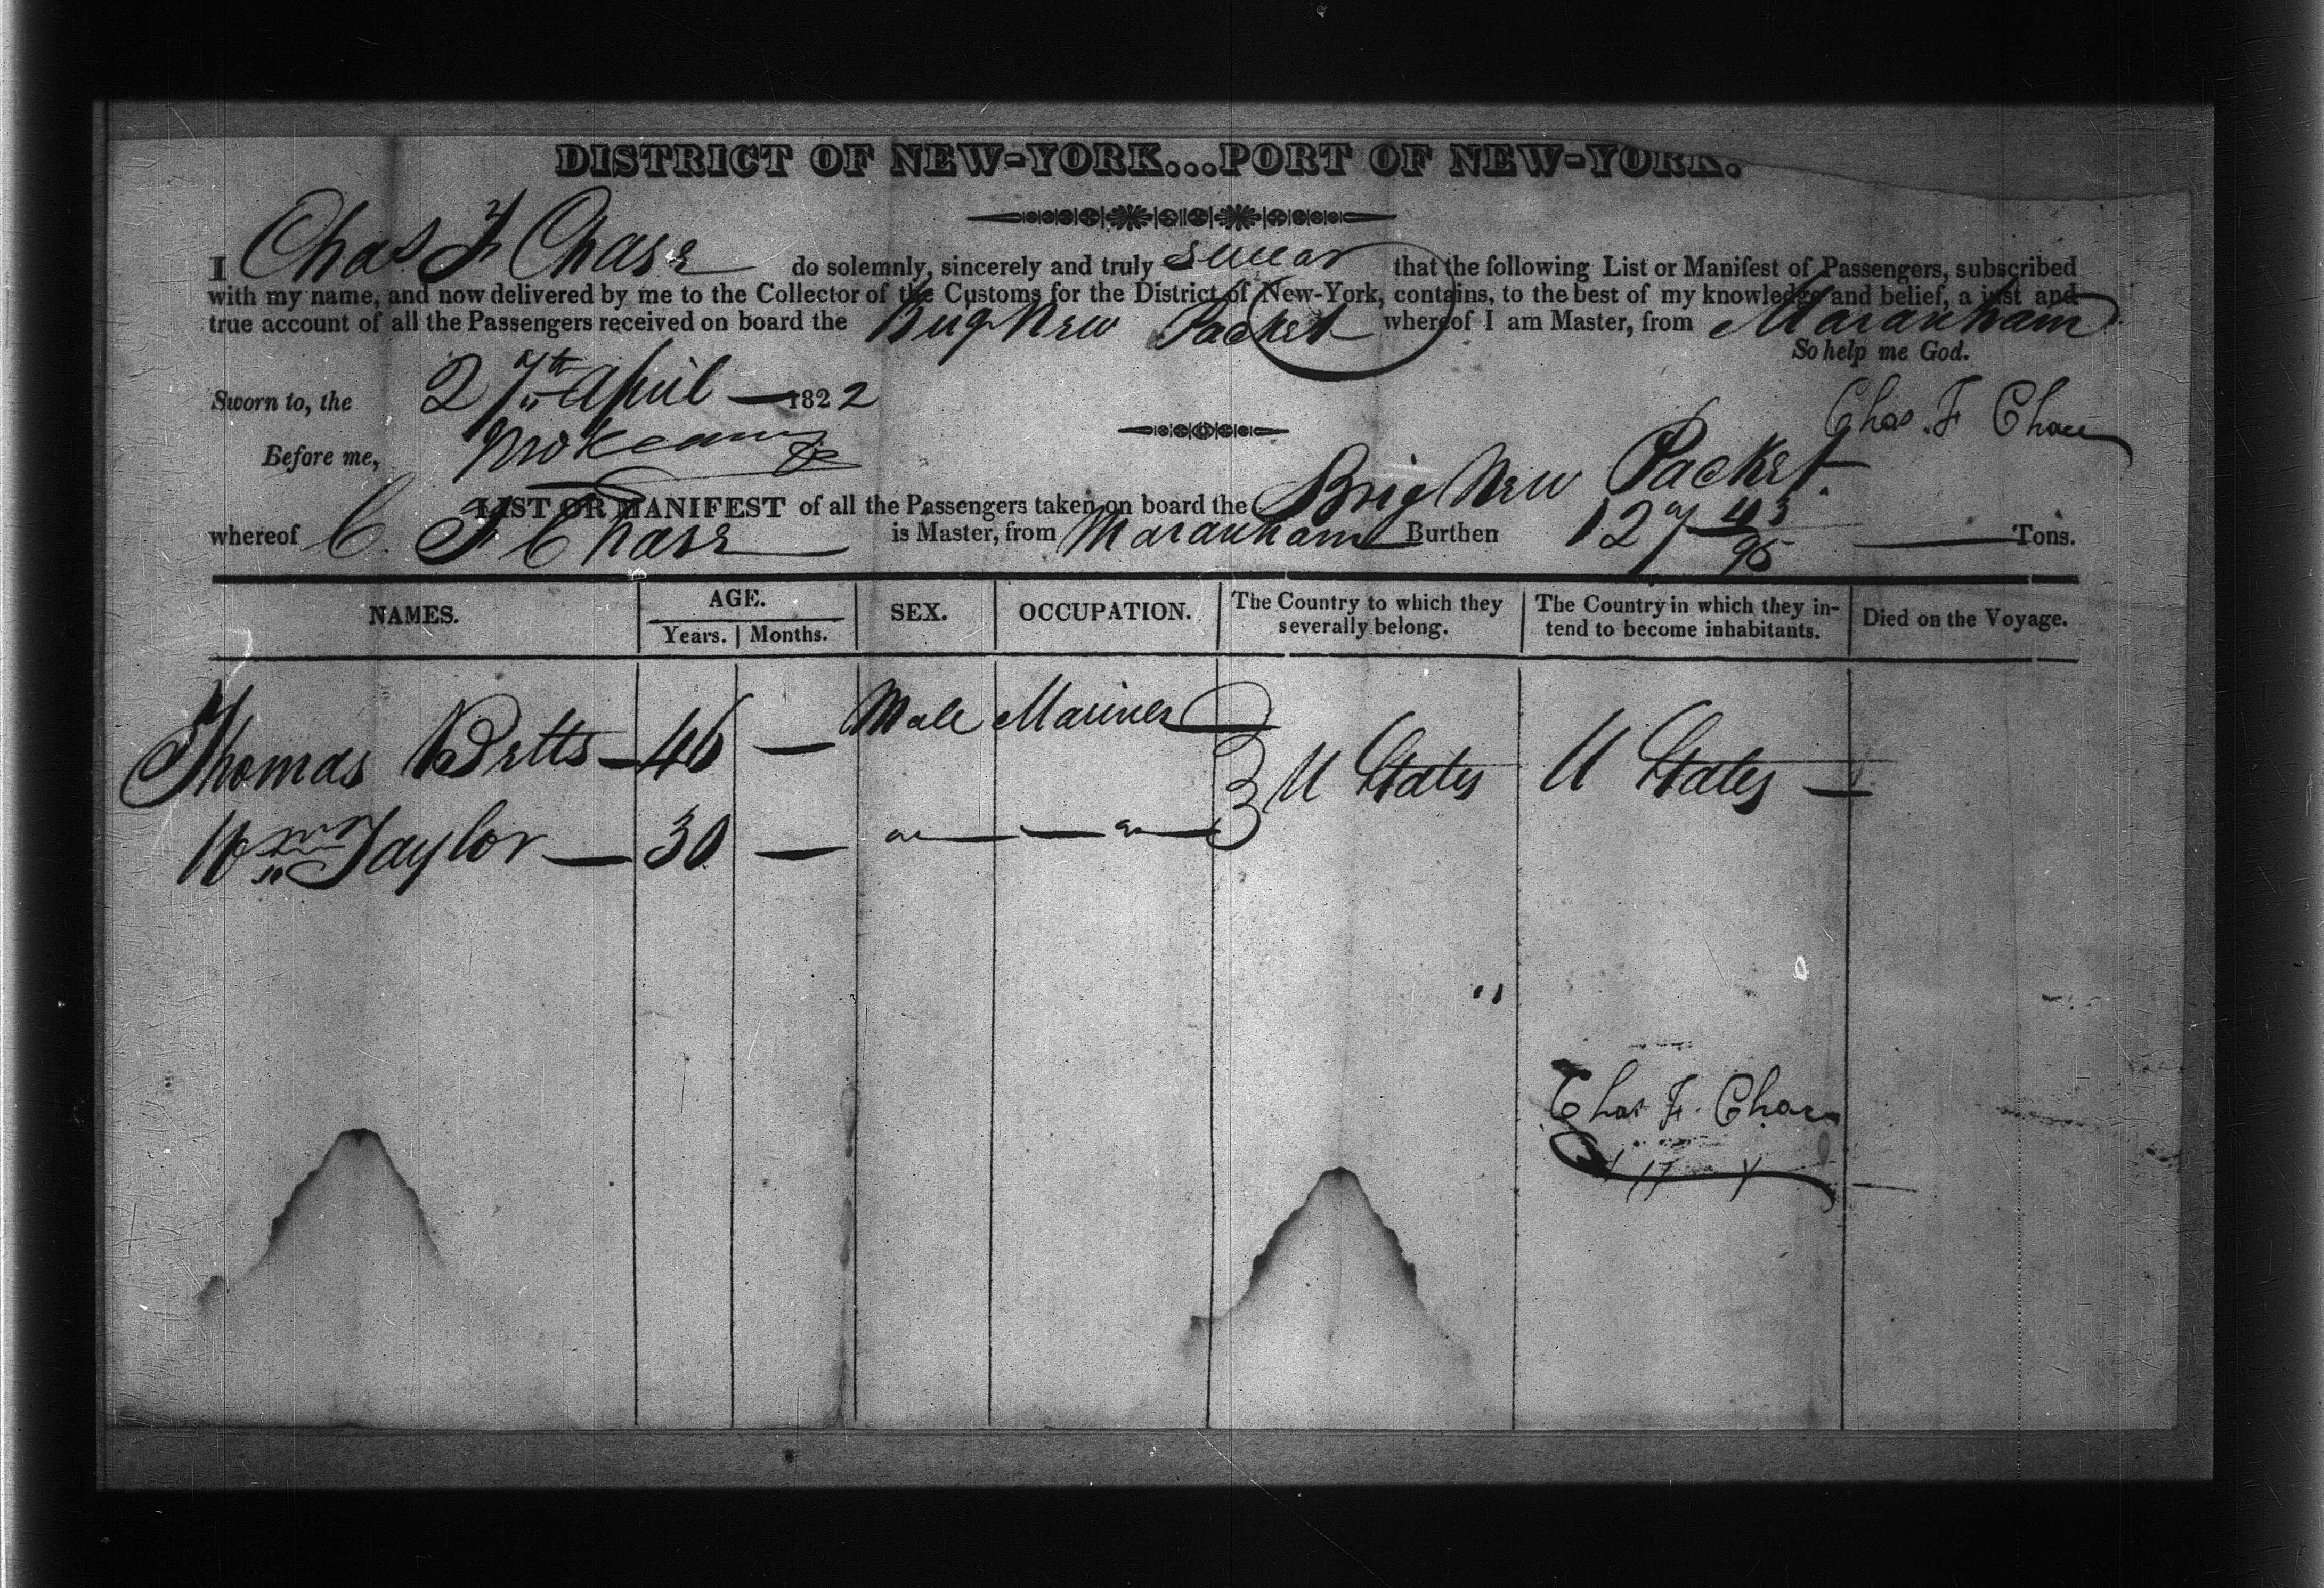 DISTRICT OF NEW-YORK...PORT OF NEW-YORK.
I Chas F Chase do solemnly, sincerely and truly swear that the following List or Manifest of Passengers, subscribed
with my name, and now delivered by me to the Collector of the Customs for the District of New-York, contains, to the best of my knowledge and belief, a just and
true account of all the Passengers received on board the Brig New Packet whereof I am Master, from Maranham
So help me God.
Sworn to, the 27th April 1822
Chas. F Chase
Before me,
LIST OR MANIFEST of all the Passengers taken on board the Brig New Packet.
whereof C. F Chase is Master, from Maranham Burthen 127 43/95 Tons.
NAMES. AGE. SEX. OCCUPATION. The Country to which they severally belong. The Country in which they intend to become inhabitants. Died on the Voyage.
Years. Months.
Thomas Betts — 46 — Male Mariner U States U States —
Wm Taylor — 30 — " — " —
Chas F. Chase